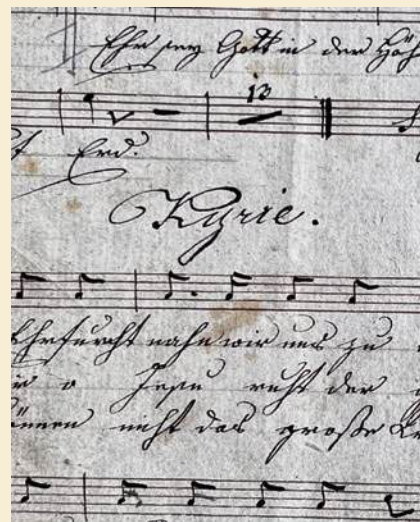 Ehr sey Gott in der Höh
13
Erd.
Kyrie.
Ehrfurcht nahn wir uns zu
o Jesu ruht der
können nicht das große